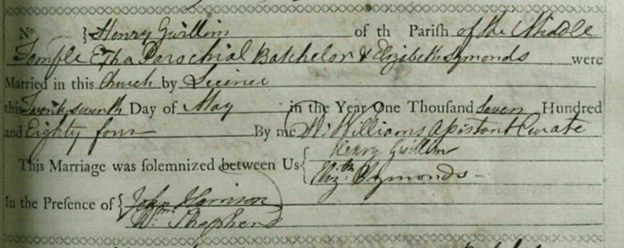 No. } Henry Gwillim of th Parish of the Middle
Temple Extra Parochial Batchelor & Elizabeth Symonds were
Married in this Church by Licince
this Twenty seventh Day of May in the Year One Thousand seven Hundred
and Eighty four By me W. Williams Assistant Curate
This Marriage was solemnized between Us { Henry Gwillim
Eliz.th Symonds
In the Presence of { John Harrison
Wm. Shepherd